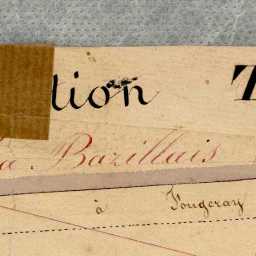 tion T
la Bazillais
à Fougeray